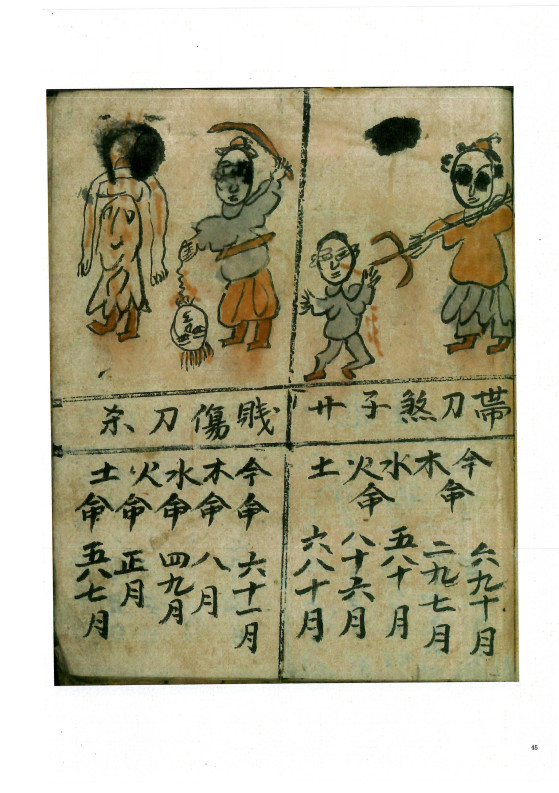 帯刀煞子廿
今木命水火命土
六九十月
二九七月
五八十月
八十六月
六八十月
賎傷刀杀
今命六十一月
木命八月
水命四九月
火命正月
土命五八七月
45